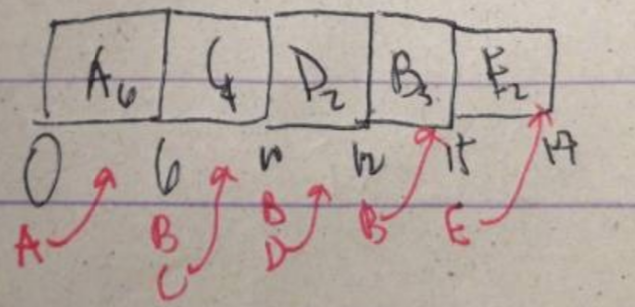 A6 C4 D2 B3 E2
0 6 10 12 15 17
A B B B E
C D